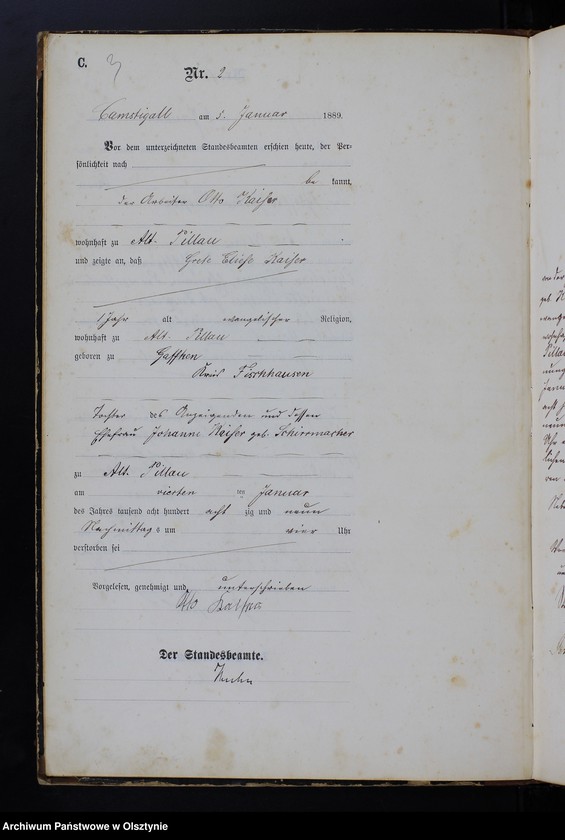 C.
3
Nr. 2
Camstigall am 5. Januar 1889.
Vor dem unterzeichneten Standesbeamten erschien heute, der Per-
sönlichkeit nach
be kannt,
der Arbeiter Otto Kaiser
wohnhaft zu Alt. Pillau
und zeigte an, daß Grete Eliese Kaiser
1 Jahr alt evangelischer Religion,
wohnhaft zu Alt. Pillau
geboren zu Gaffken
Kreis Fischhausen
Tochter des Anzeigenden und dessen
Ehefrau Johanne Kaiser geb. Schirrmacher
zu Alt. Pillau
am vierten ten Januar
des Jahres tausend acht hundert acht zig und neun
Nachmittag s um vier Uhr
verstorben sei
Vorgelesen, genehmigt und unterschrieben
Otto Kaiser
Der Standesbeamte.
Archiwum Państwowe w Olsztynie